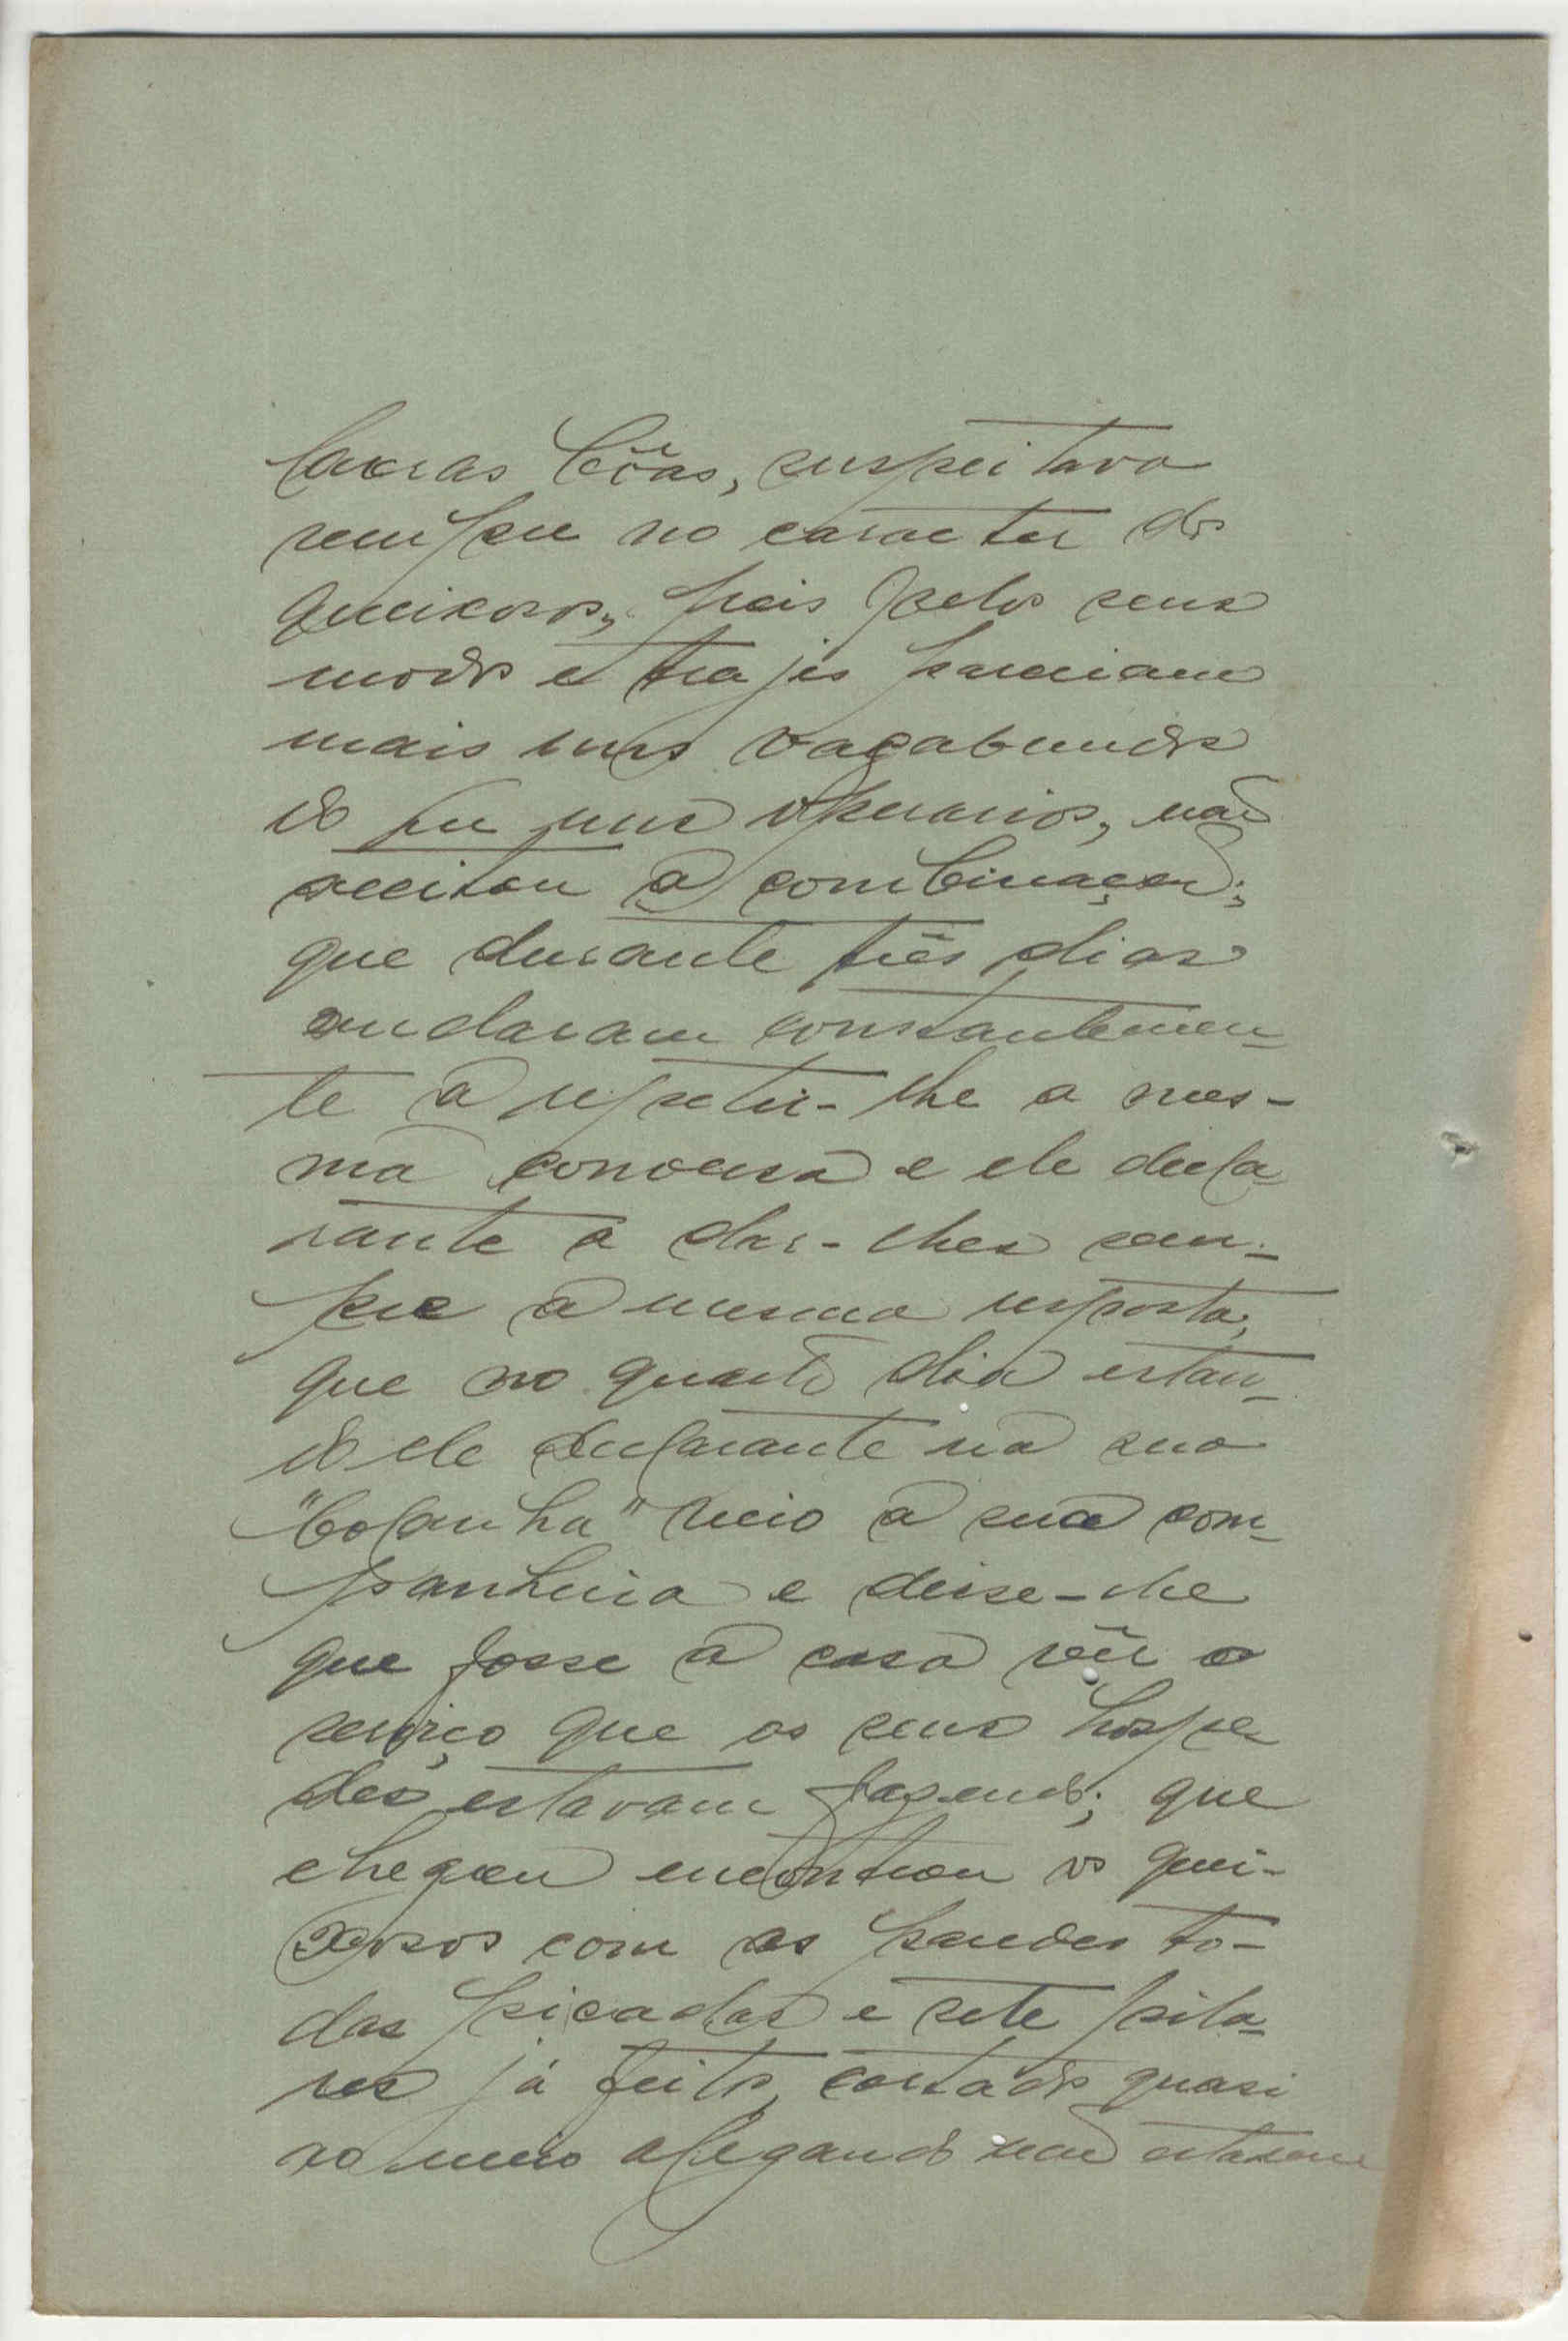 boas, suspeitava
sempre no caracter dos
queixosos, pois pelos seus
modos e trajes pareciam
mais uns vagabundos
do que uns operarios, não
aceitou a combinação;
que durante três dias
andaram constantemen-
te a repetir-lhe a mes-
ma conversa e ele decla-
rante a dar-lhes sem-
pre a mesma resposta;
que no quarto dia estan-
do ele declarante na sua
"bolanha" veio a sua com-
panheira e disse-lhe
que fosse a casa vêr o
serviço que os seus hospe-
des estavam fazendo; que
chegou encontrou os quei-
xosos com as paredes to-
das picadas e sete pila-
res já feitos, cortados quasi
no meio alegando não estarem